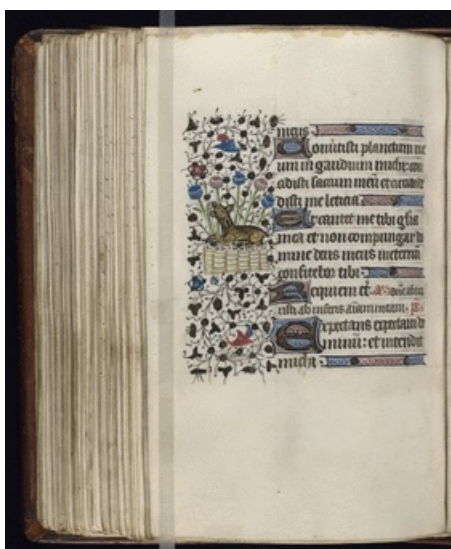 meus
Conūtisti planctum me
um in gaudium michi: con
cidisti saccum meū et circumde
disti me leticia
Ut cantet tibi gl̄ia
mea et non compungar do
mine deus meus ineternū
confitebor tibi·
Requiem et̄.
xisti ab inferis animam meam.
Expectans expectaui do
minum: et intendit
michi·